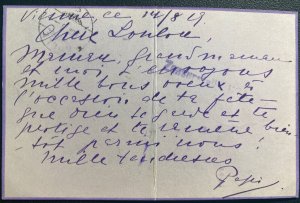 Vienne, ce 14/8 19
Chère Loulou,
Maman, grand'maman
et moi t'envoyons
mille bons voeux à
l'occasion de ta fête
que Dieu te garde et te
protège et te ramène bien-
tôt parmi nous!
Mille tendresses
Papi